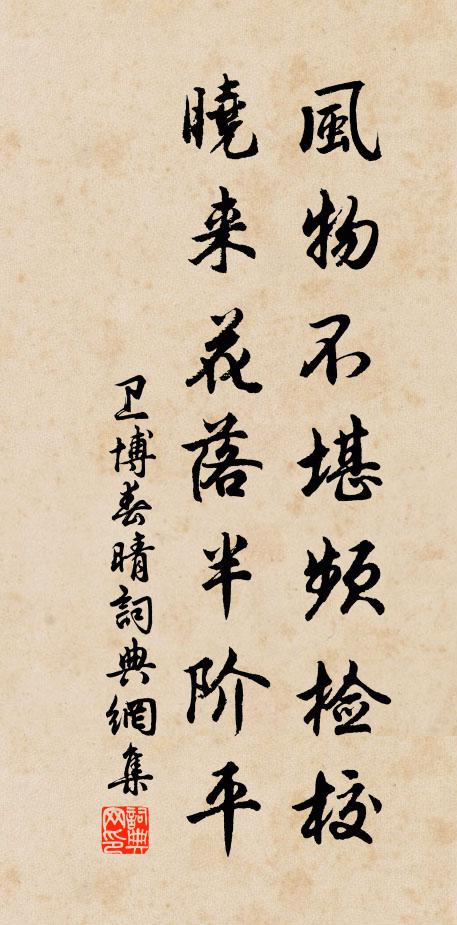 風物不堪频检校
曉来花落半阶平
卫博春晴詞典網集
詞典网印